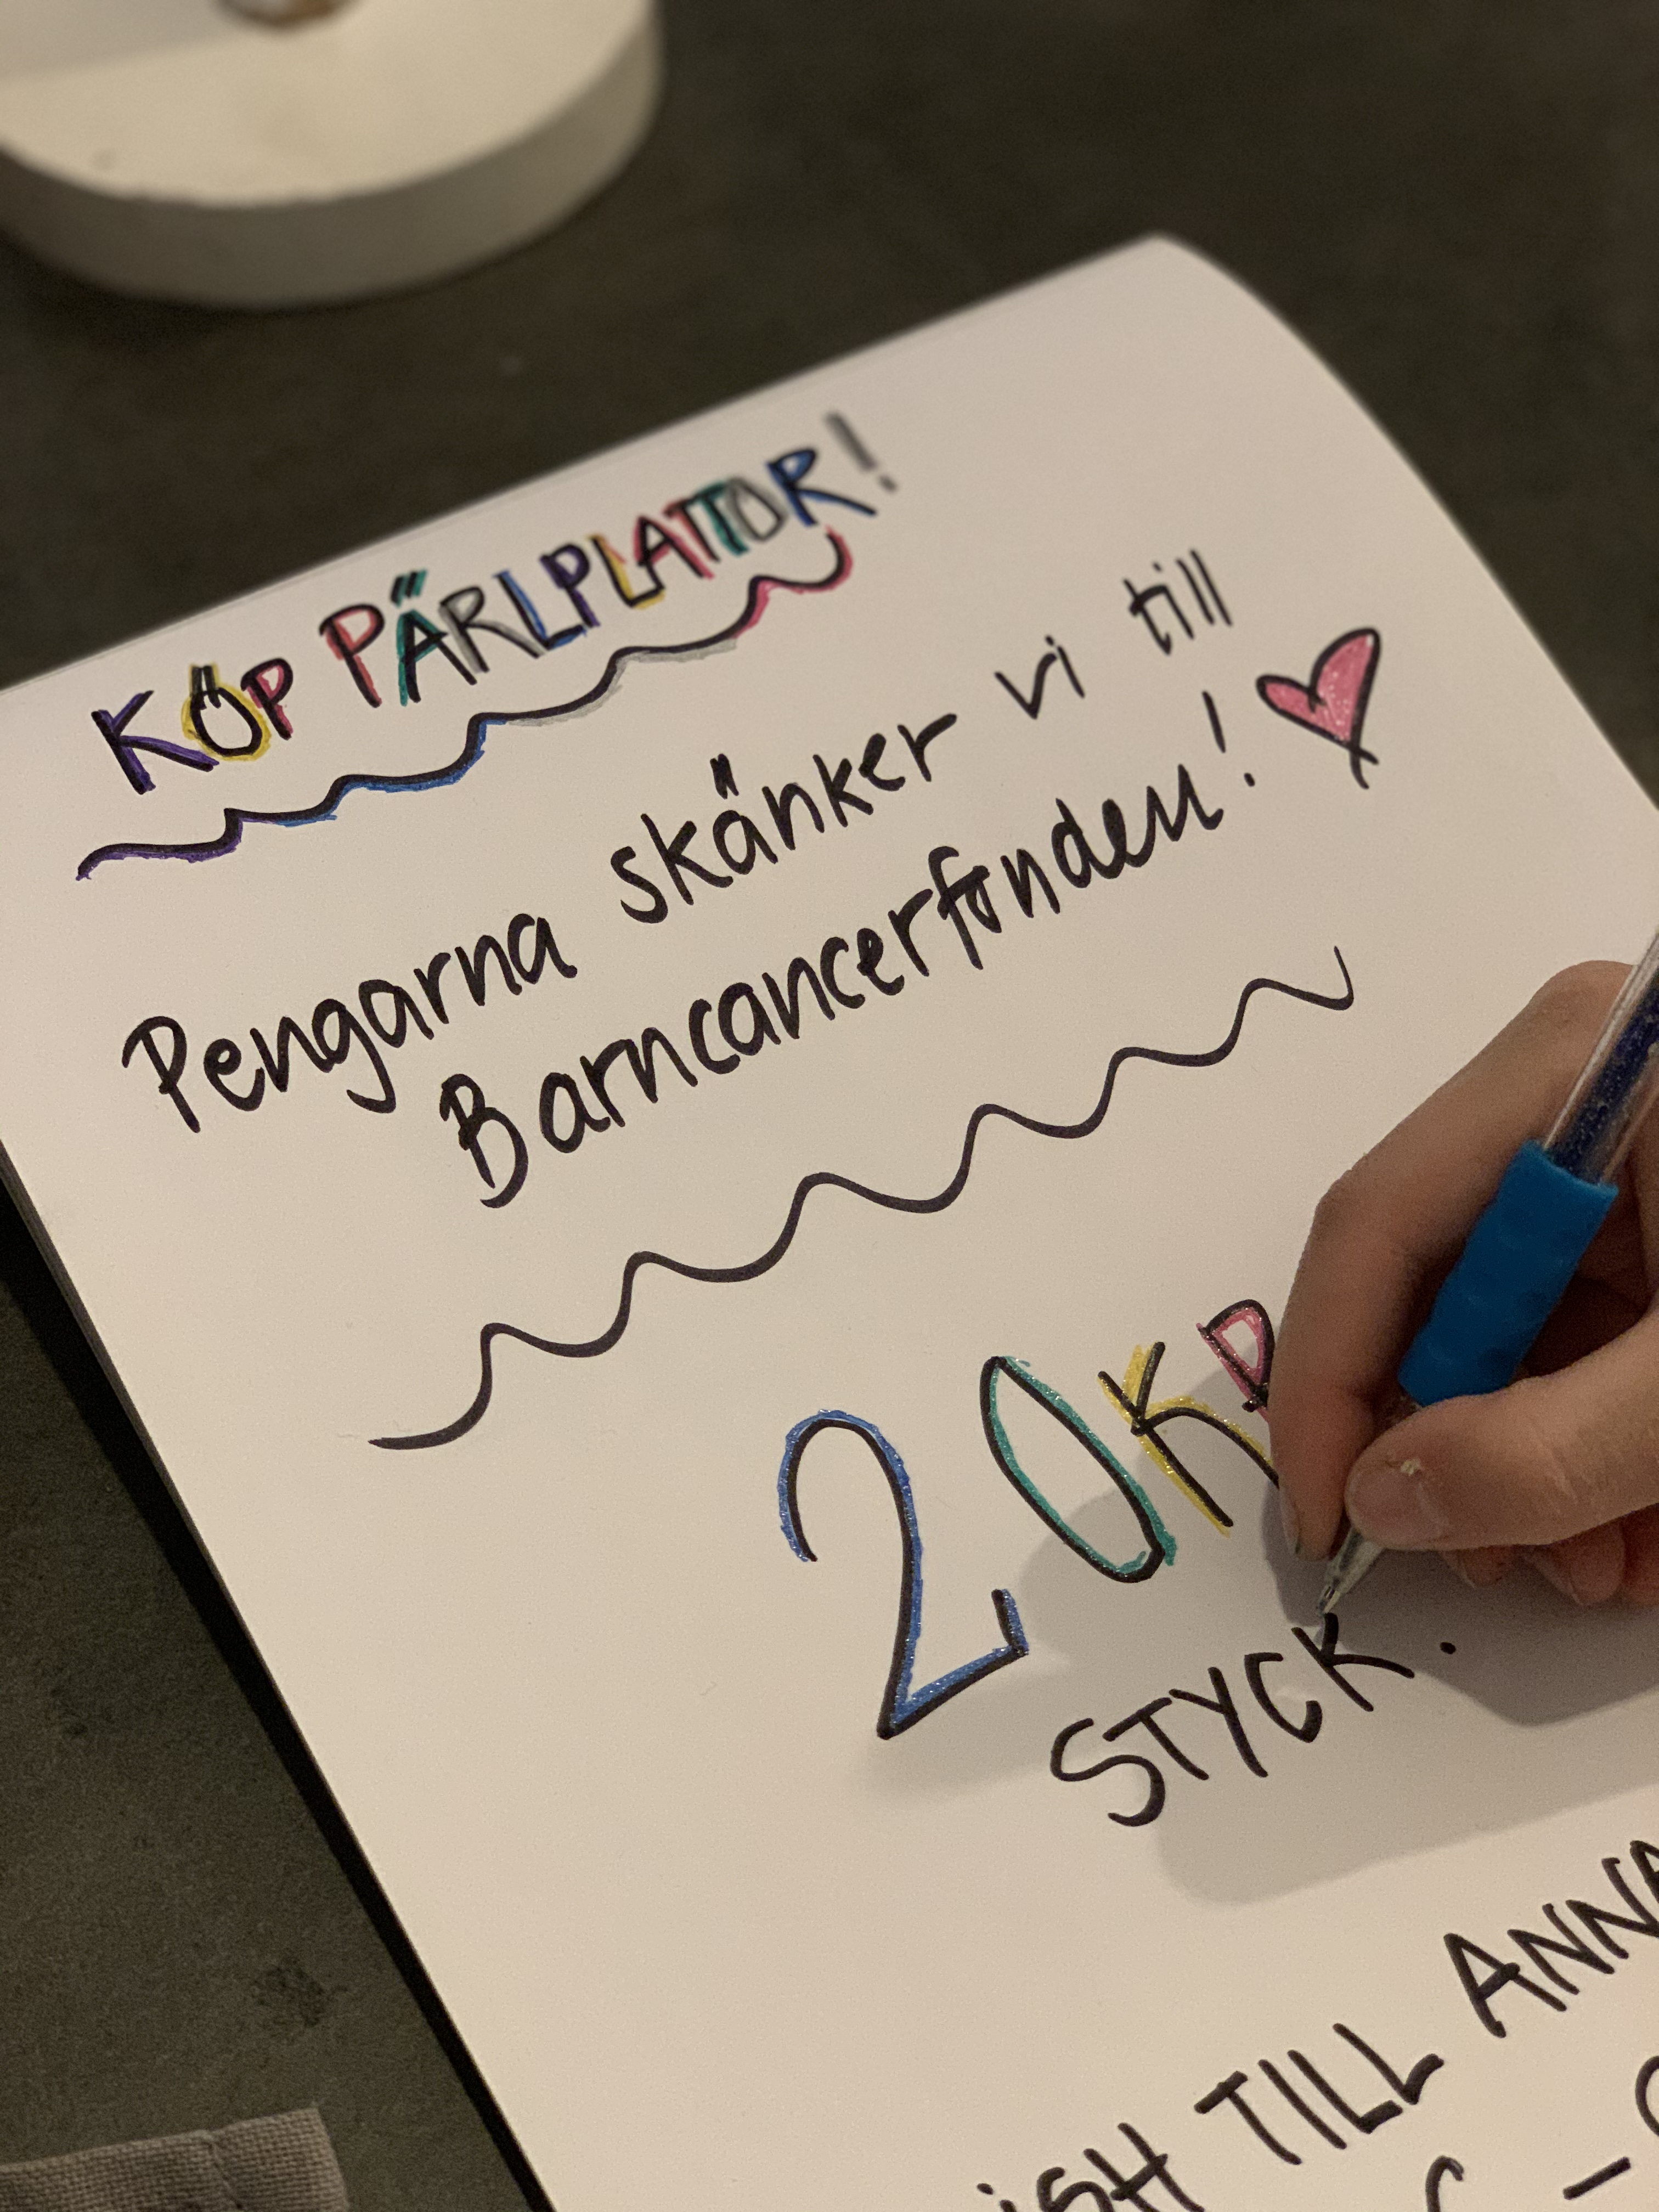 KÖP PÄRLPLATTOR!
Pengarna skänker vi till
Barncancerfonden!
20KR
STYCK.
TILL ANNA